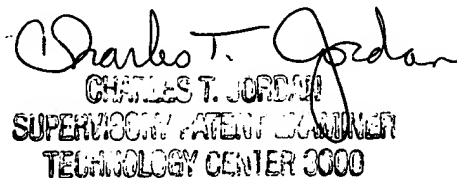 Charles T. Jordan
CHARLES T. JORDAN
SUPERVISORY PATENT EXAMINER
TECHNOLOGY CENTER 3000